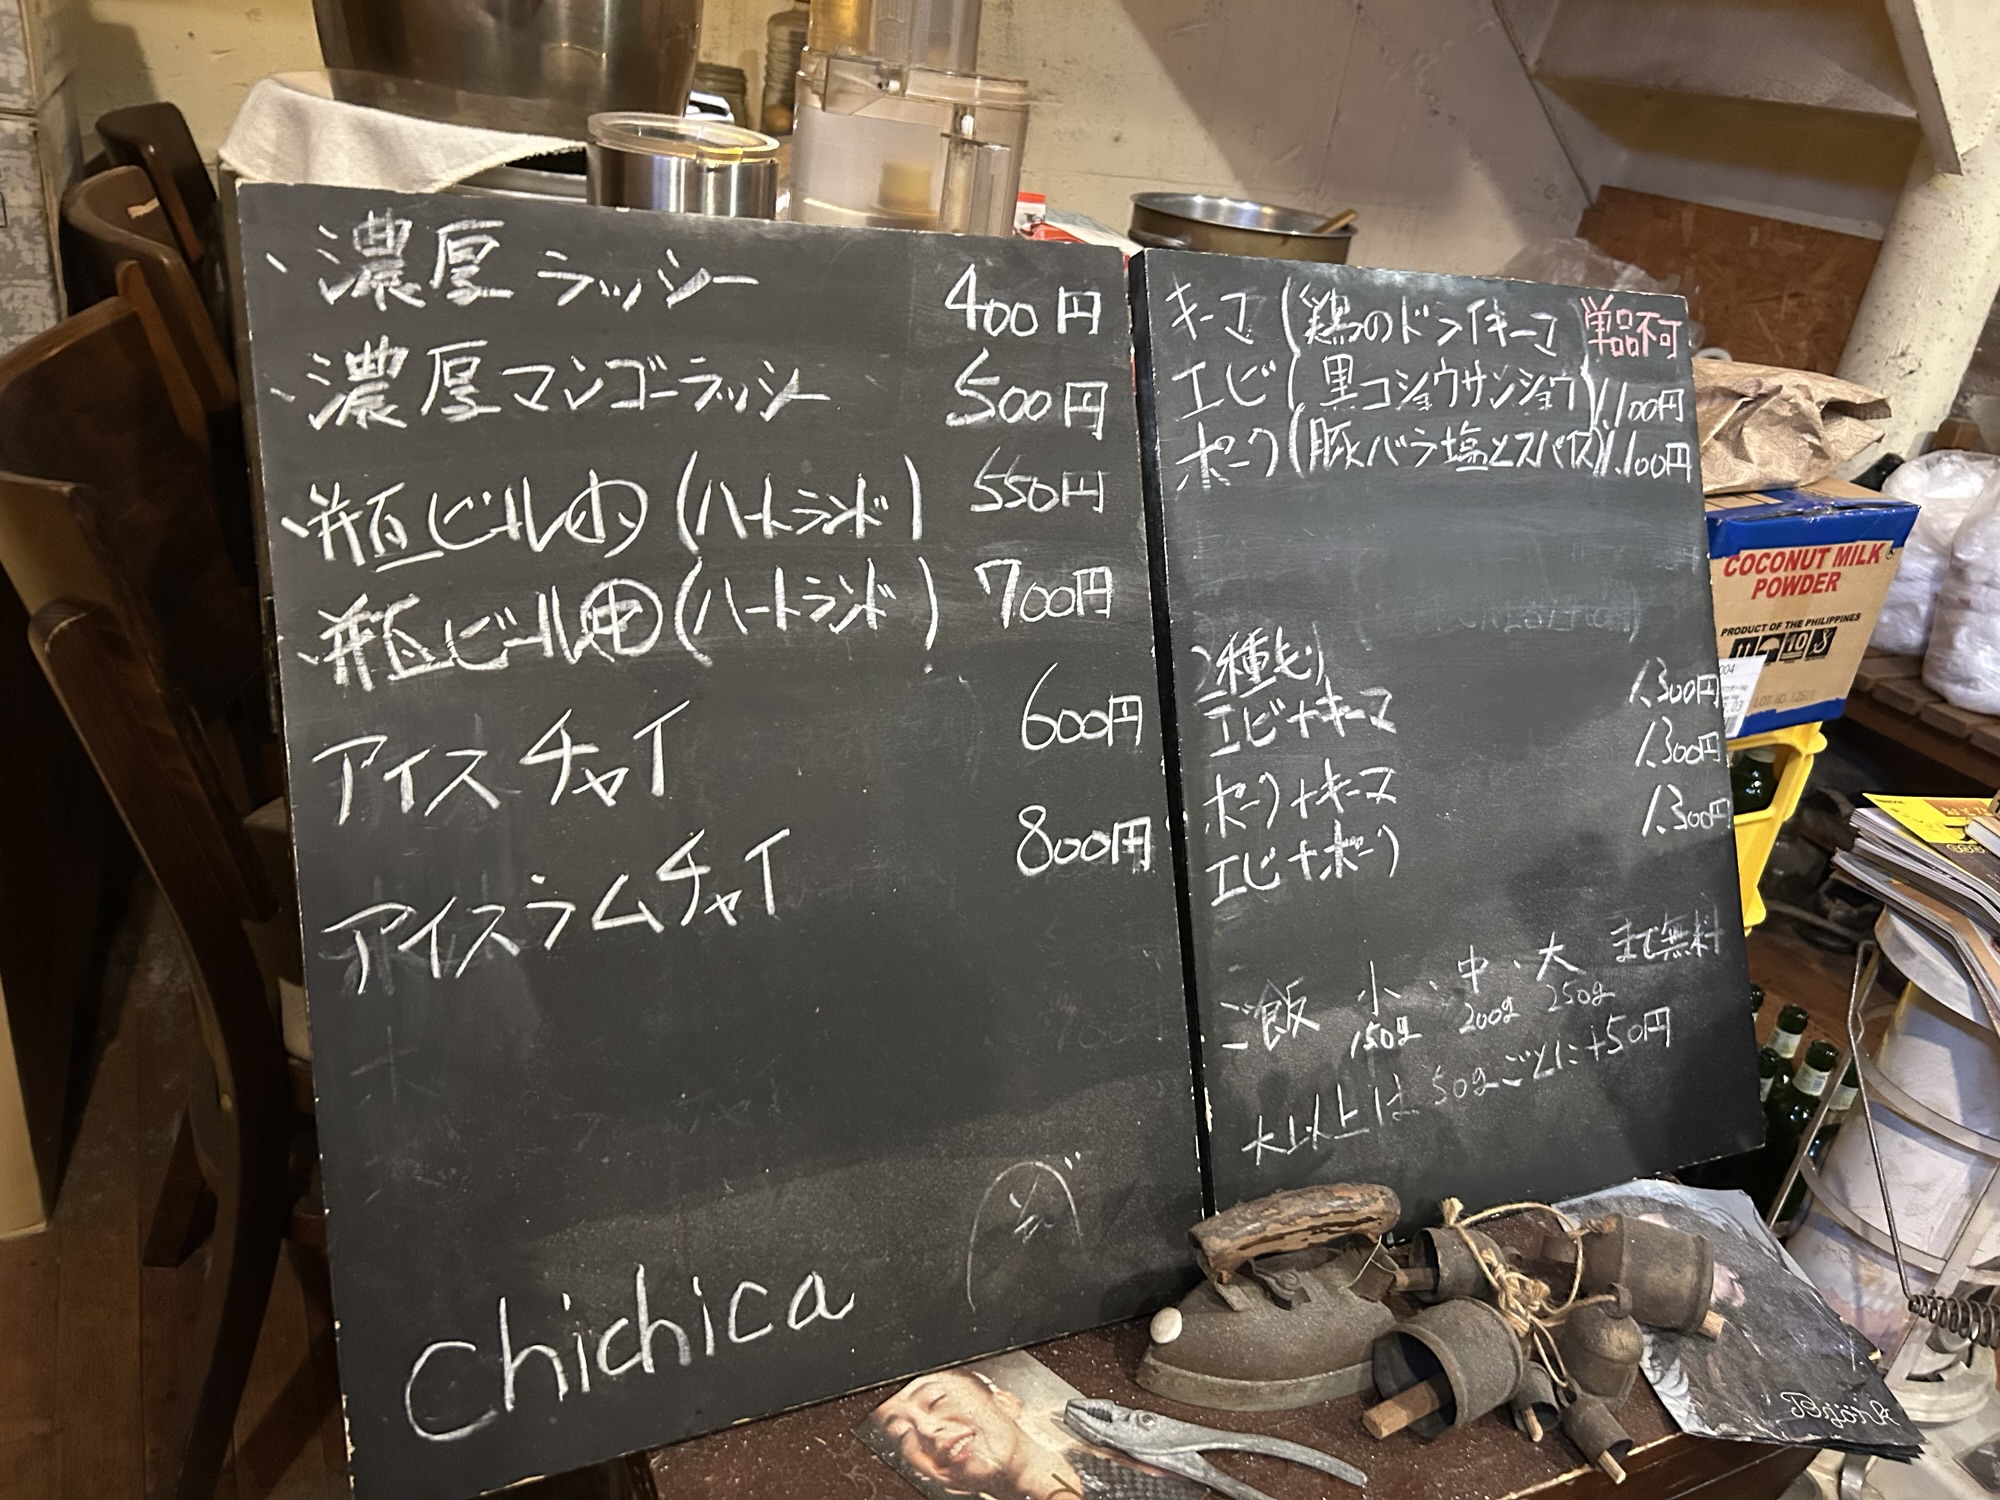 ・濃厚ラッシー 400円
・濃厚マンゴーラッシー 500円
・瓶ビール小(ハートランド) 550円
・瓶ビール中(ハートランド) 700円
アイスチャイ 600円
アイスラムチャイ 800円
Chichica
キーマ(鶏のドライキーマ 単品不可
エビ(黒コショウサンショウ)1.100円
ポーク(豚バラ塩とスパイス)1.100円
2種もり
エビ+キーマ 1.300円
ポーク+キーマ 1.300円
エビ+ポーク 1.300円
ご飯 小・中・大 まで無料
150g 200g 250g
大以上は50gごとに+50円
COCONUT MILK
POWDER
PRODUCT OF THE PHILIPPINES
Björk